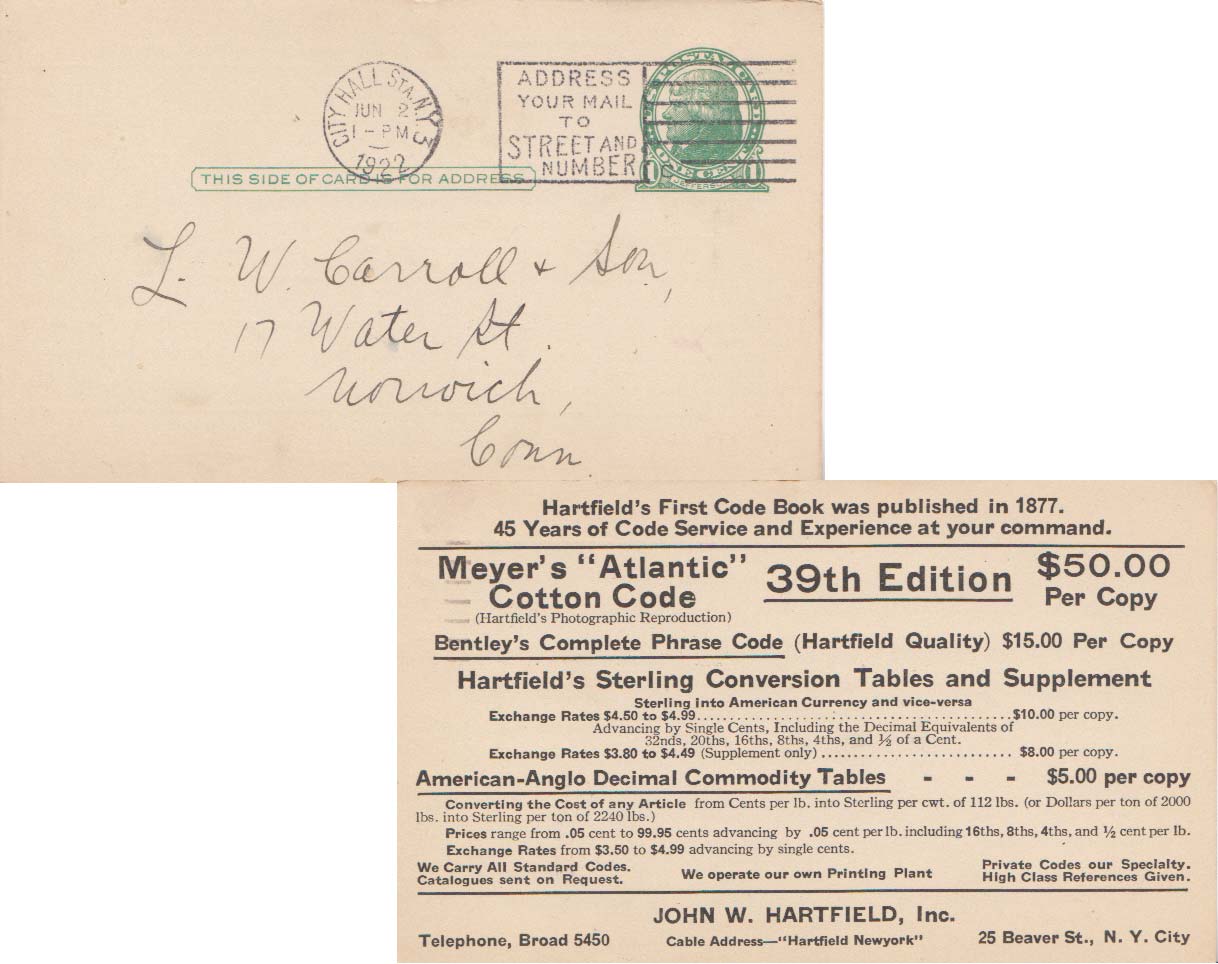 CITY HALL STA. N.Y. 3
JUN 2
1 - PM
1922
ADDRESS
YOUR MAIL
TO
STREET AND
NUMBER
U.S. POSTAL CARD
ONE CENT
1 1
JEFFERSON
THIS SIDE OF CARD IS FOR ADDRESS
L. W. Carroll & Son,
17 Water St.
Norwich,
Conn.
Hartfield's First Code Book was published in 1877.
45 Years of Code Service and Experience at your command.
Meyer's "Atlantic"
Cotton Code
(Hartfield's Photographic Reproduction)
39th Edition
$50.00
Per Copy
Bentley's Complete Phrase Code (Hartfield Quality) $15.00 Per Copy
Hartfield's Sterling Conversion Tables and Supplement
Sterling into American Currency and vice-versa
Exchange Rates $4.50 to $4.99........................................$10.00 per copy.
Advancing by Single Cents, Including the Decimal Equivalents of
32nds, 20ths, 16ths, 8ths, 4ths, and ½ of a Cent.
Exchange Rates $3.80 to $4.49 (Supplement only) .......................... $8.00 per copy.
American-Anglo Decimal Commodity Tables - - - $5.00 per copy
Converting the Cost of any Article from Cents per lb. into Sterling per cwt. of 112 lbs. (or Dollars per ton of 2000
lbs. into Sterling per ton of 2240 lbs.)
Prices range from .05 cent to 99.95 cents advancing by .05 cent per lb. including 16ths, 8ths, 4ths, and ½ cent per lb.
Exchange Rates from $3.50 to $4.99 advancing by single cents.
We Carry All Standard Codes.
Catalogues sent on Request.
We operate our own Printing Plant
Private Codes our Specialty.
High Class References Given.
JOHN W. HARTFIELD, Inc.
Telephone, Broad 5450
Cable Address—"Hartfield Newyork"
25 Beaver St., N. Y. City